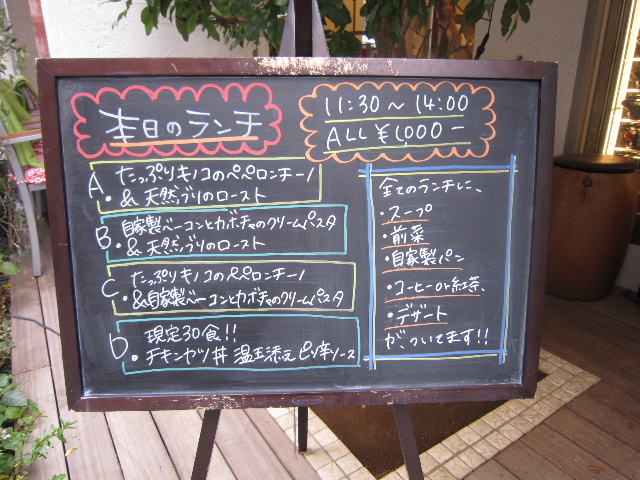 本日のランチ
11:30～14:00
ALL ¥1,000-
A. たっぷりキノコのペペロンチーノ
& 天然ブリのロースト
B. 自家製ベーコンとカボチャのクリームパスタ
& 天然ブリのロースト
C. たっぷりキノコのペペロンチーノ
&自家製ベーコンとカボチャのクリームパスタ
D. 現定30食!!
チキンカツ丼 温玉添え ピリ辛ソース
全てのランチに、
・スープ
・前菜
・自家製パン
・コーヒーor紅茶、
・デザート
が、ついてます!!